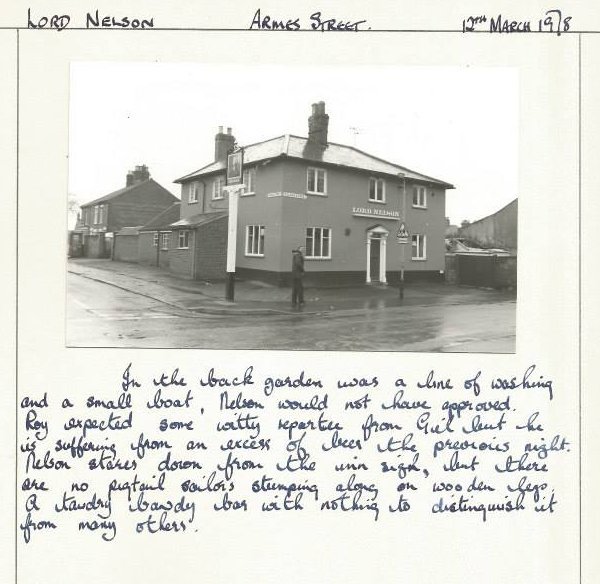 LORD NELSON ARMES STREET. 12TH MARCH 1978
LORD NELSON
In the back garden was a line of washing
and a small boat, Nelson would not have approved.
Roy expected some witty repartee from Gil but he
is suffering from an excess of beer the previous night.
Nelson stares down from the inn sign, but there
are no pigtail sailors stumping along on wooden legs.
A tawdry bawdy bar with nothing to distinguish it
from many others.